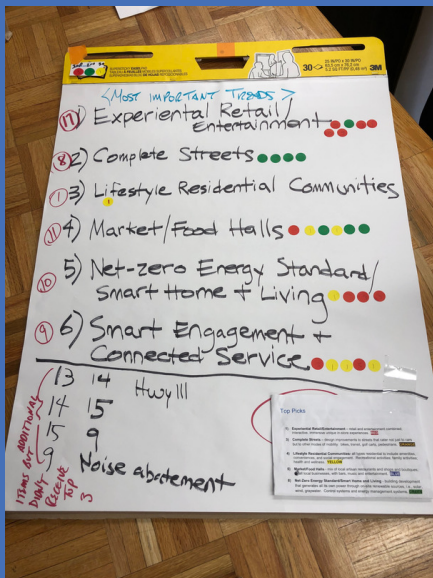 30
3M
<MOST IMPORTANT TRENDS>
17 1) Experiental Retail/
Entertainment
8 2) Complete Streets
1 3) Lifestyle Residential Communities
11 4) Market/Food Halls
10 5) Net-zero Energy Standard/
Smart Home + Living
9 6) Smart Engagement +
Connected Service
13 14 Hwy 111
14 15
15 9
9 Noise abatement
ITEMS BUT ADDITIONAL
DIDN'T
RECEIVE
TOP
3
Top Picks
1) Experiential Retail/Entertainment
2) Complete Streets
3) Lifestyle Residential Communities
YELLOW
4) Market/Food Halls
5) Net-Zero Energy Standard/Smart Home and Living